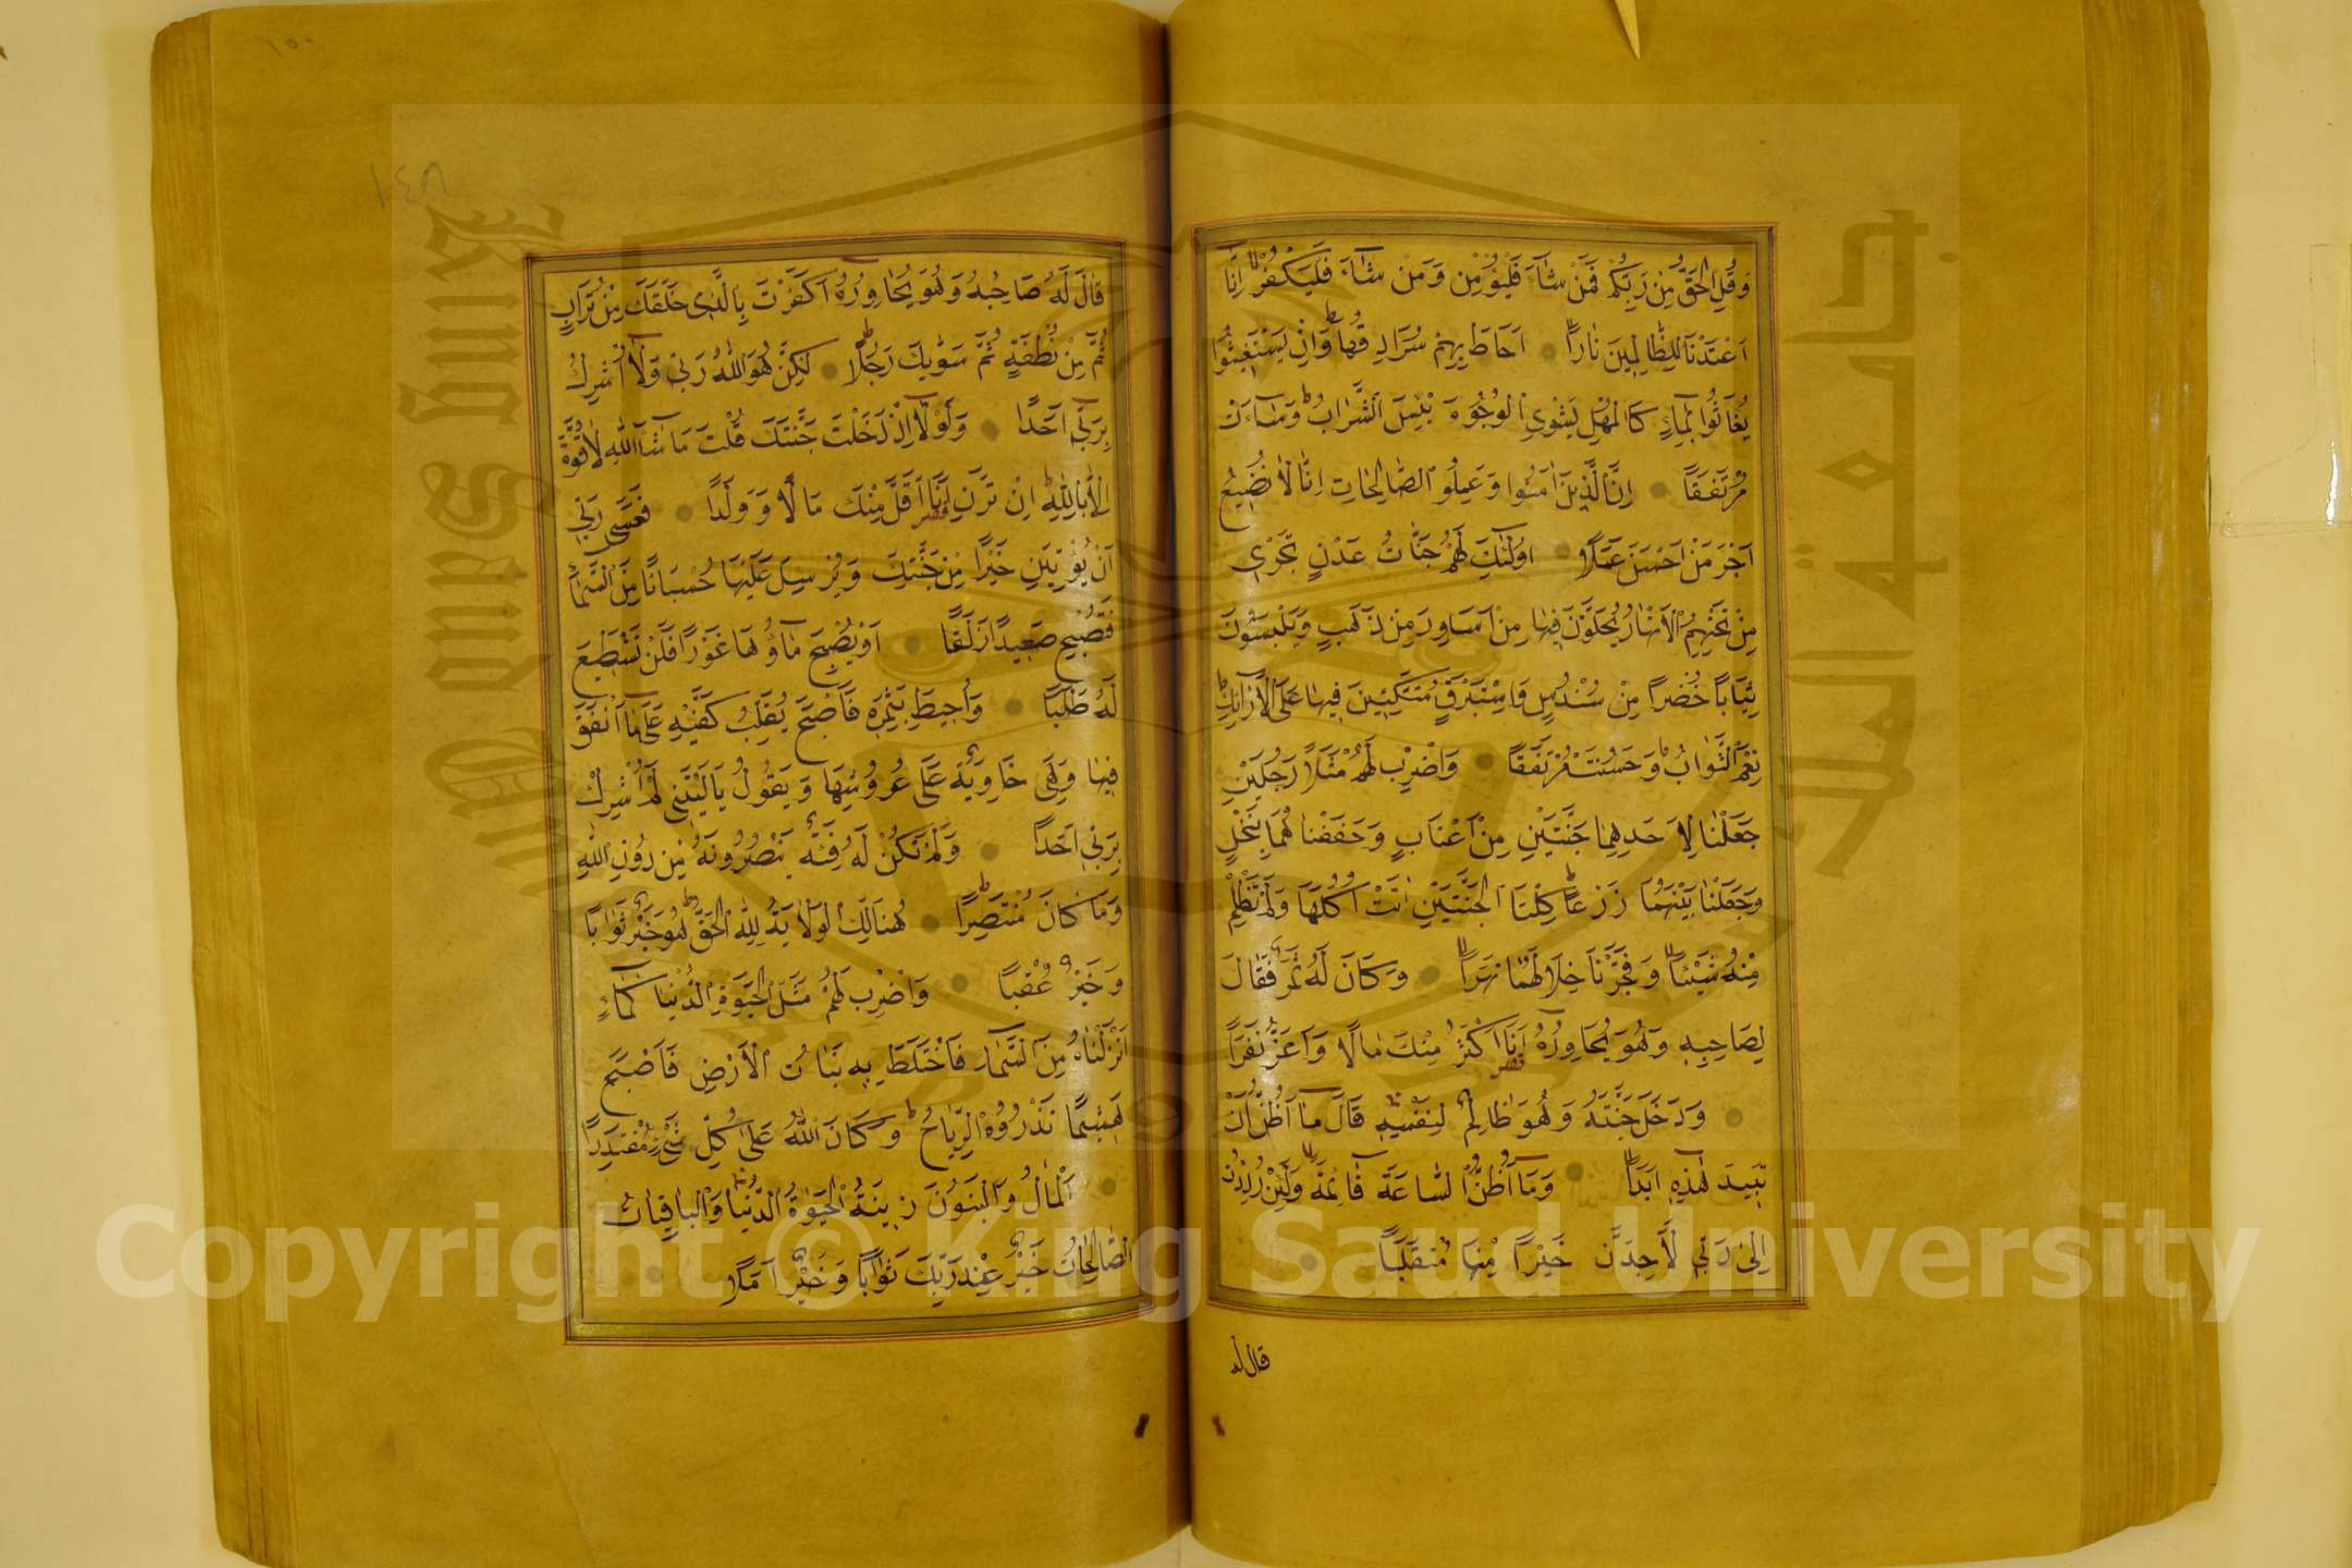 وَقُلِ الْحَقُّ مِنْ رَبِّكُمْ فَمَنْ شَآءَ فَلْيُؤْمِنْ وَمَنْ شَآءَ فَلْيَكْفُرْ اِنَّا
اَعْتَدْنَا لِلظَّالِمِينَ نَارًا اَحَاطَ بِهِمْ سُرَادِقُهَا وَاِنْ يَسْتَغِيثُوا
يُغَاثُوا بِمَاءٍ كَالْمُهْلِ يَشْوِي الْوُجُوهَ بِئْسَ الشَّرَابُ وَسَآءَتْ
مُرْتَفَقًا اِنَّ الَّذِينَ اٰمَنُوا وَعَمِلُوا الصَّالِحَاتِ اِنَّا لَا نُضِيعُ
اَجْرَ مَنْ اَحْسَنَ عَمَلًا اُولٰئِكَ لَهُمْ جَنَّاتُ عَدْنٍ تَجْرِي
مِنْ تَحْتِهِمُ الْاَنْهَارُ يُحَلَّوْنَ فِيهَا مِنْ اَسَاوِرَ مِنْ ذَهَبٍ وَيَلْبَسُونَ
ثِيَابًا خُضْرًا مِنْ سُنْدُسٍ وَاِسْتَبْرَقٍ مُتَّكِئِينَ فِيهَا عَلَى الْاَرَائِكِ
نِعْمَ الثَّوَابُ وَحَسُنَتْ مُرْتَفَقًا وَاضْرِبْ لَهُمْ مَثَلًا رَجُلَيْنِ
جَعَلْنَا لِاَحَدِهِمَا جَنَّتَيْنِ مِنْ اَعْنَابٍ وَحَفَفْنَاهُمَا بِنَخْلٍ
وَجَعَلْنَا بَيْنَهُمَا زَرْعًا كِلْتَا الْجَنَّتَيْنِ اٰتَتْ اُكُلَهَا وَلَمْ تَظْلِمْ
مِنْهُ شَيْئًا وَفَجَّرْنَا خِلَالَهُمَا نَهَرًا وَكَانَ لَهُ ثَمَرٌ فَقَالَ
لِصَاحِبِهِ وَهُوَ يُحَاوِرُهُ اَنَا اَكْثَرُ مِنْكَ مَالًا وَاَعَزُّ نَفَرًا
قصر
وَدَخَلَ جَنَّتَهُ وَهُوَ ظَالِمٌ لِنَفْسِهِ قَالَ مَا اَظُنُّ اَنْ
تَبِيدَ هٰذِهِ اَبَدًا وَمَا اَظُنُّ السَّاعَةَ قَائِمَةً وَلَئِنْ رُدِدْتُ
اِلٰى رَبِّي لَاَجِدَنَّ خَيْرًا مِنْهَا مُنْقَلَبًا
قال له
١٥٠
١٤٨
قَالَ لَهُ صَاحِبُهُ وَهُوَ يُحَاوِرُهُ اَكَفَرْتَ بِالَّذِي خَلَقَكَ مِنْ تُرَابٍ
ثُمَّ مِنْ نُطْفَةٍ ثُمَّ سَوّٰيكَ رَجُلًا لٰكِنَّ هُوَ اللّٰهُ رَبِّي وَلَا اُشْرِكُ
بِرَبِّي اَحَدًا وَلَوْلَا اِذْ دَخَلْتَ جَنَّتَكَ قُلْتَ مَا شَآءَ اللّٰهُ لَا قُوَّةَ
اِلَّا بِاللّٰهِ اِنْ تَرَنِ اَنَا اَقَلَّ مِنْكَ مَالًا وَوَلَدًا فَعَسٰى رَبِّي
قصر
اَنْ يُؤْتِيَنِ خَيْرًا مِنْ جَنَّتِكَ وَيُرْسِلَ عَلَيْهَا حُسْبَانًا مِنَ السَّمَاءِ
فَتُصْبِحَ صَعِيدًا زَلَقًا اَوْ يُصْبِحَ مَاؤُهَا غَوْرًا فَلَنْ تَسْتَطِيعَ
لَهُ طَلَبًا وَاُحِيطَ بِثَمَرِهِ فَاَصْبَحَ يُقَلِّبُ كَفَّيْهِ عَلٰى مَا اَنْفَقَ
فِيهَا وَهِيَ خَاوِيَةٌ عَلٰى عُرُوشِهَا وَيَقُولُ يَا لَيْتَنِي لَمْ اُشْرِكْ
بِرَبِّي اَحَدًا وَلَمْ تَكُنْ لَهُ فِئَةٌ يَنْصُرُونَهُ مِنْ دُونِ اللّٰهِ
وَمَا كَانَ مُنْتَصِرًا هُنَالِكَ الْوَلَايَةُ لِلّٰهِ الْحَقِّ هُوَ خَيْرٌ ثَوَابًا
وَخَيْرٌ عُقْبًا وَاضْرِبْ لَهُمْ مَثَلَ الْحَيٰوةِ الدُّنْيَا كَمَاءٍ
اَنْزَلْنَاهُ مِنَ السَّمَاءِ فَاخْتَلَطَ بِهِ نَبَاتُ الْاَرْضِ فَاَصْبَحَ
هَشِيمًا تَذْرُوهُ الرِّيَاحُ وَكَانَ اللّٰهُ عَلٰى كُلِّ شَيْءٍ مُقْتَدِرًا
اَلْمَالُ وَالْبَنُونَ زِينَةُ الْحَيٰوةِ الدُّنْيَا وَالْبَاقِيَاتُ
الصَّالِحَاتُ خَيْرٌ عِنْدَ رَبِّكَ ثَوَابًا وَخَيْرٌ اَمَلًا
Copyright © King Saud University
King Saud University
جامعة الملك